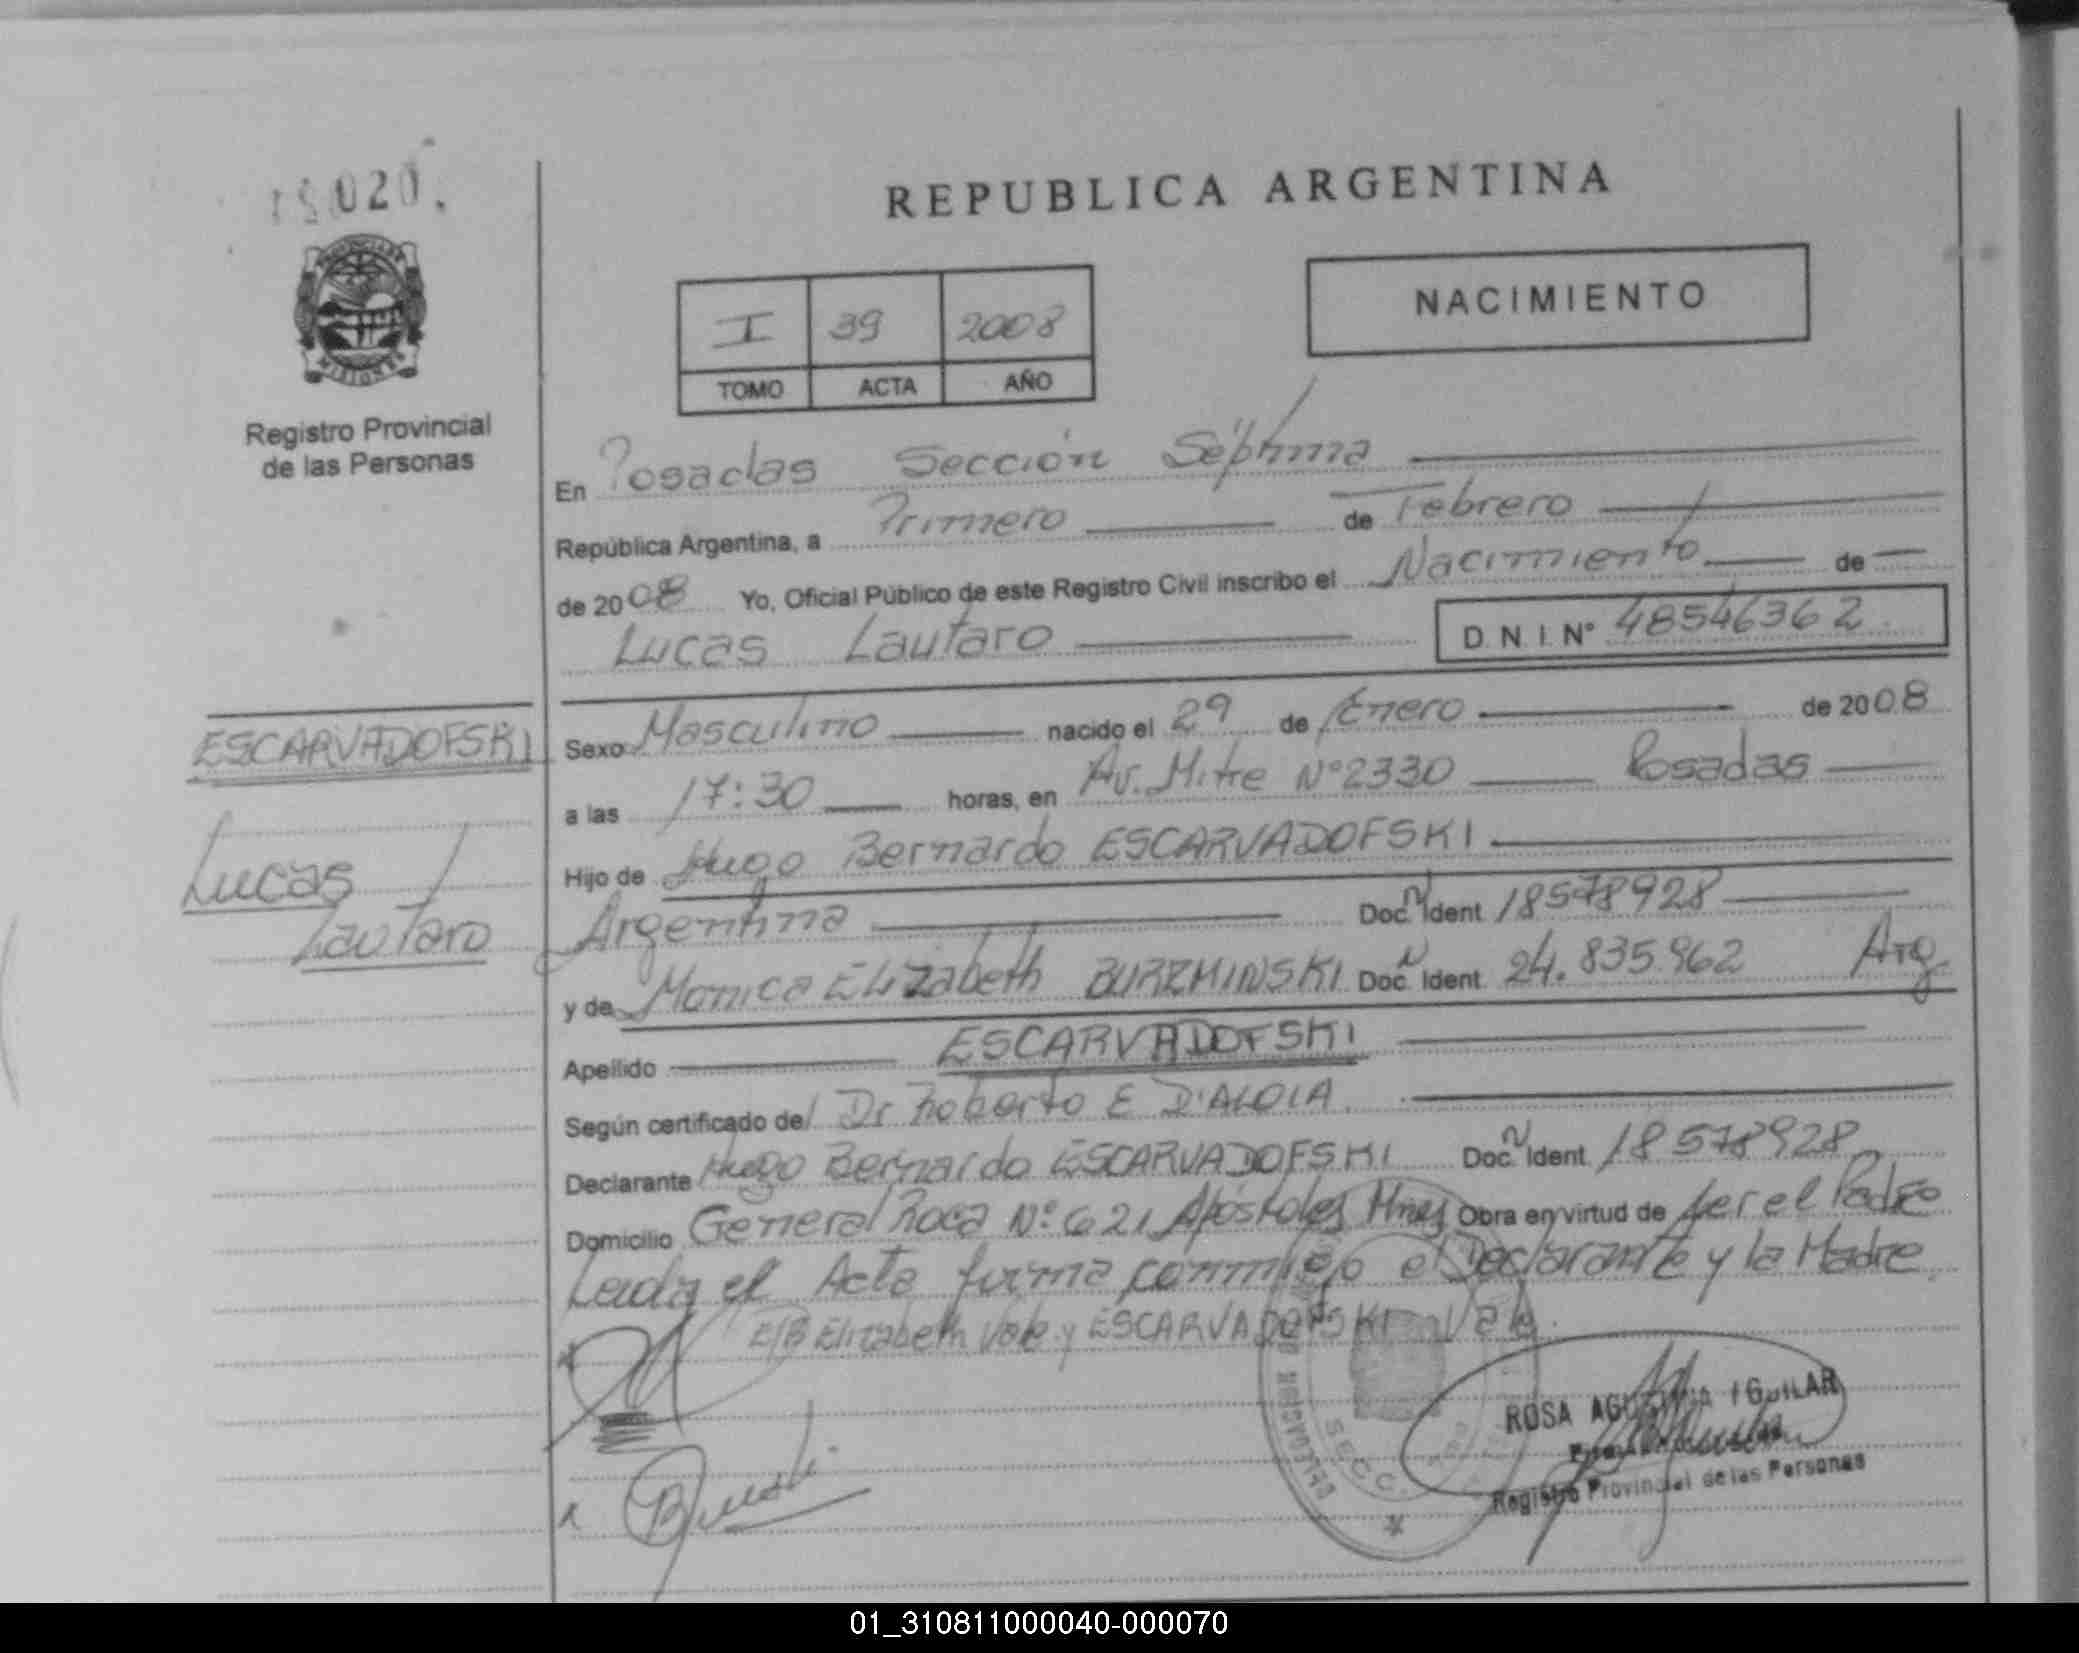 REPUBLICA ARGENTINA
NACIMIENTO
I 39 2008
TOMO ACTA AÑO
Registro Provincial
de las Personas
En Posadas Sección Séptima
República Argentina, a Primero de Febrero
de 2008 Yo, Oficial Público de este Registro Civil inscribo el Nacimiento de
Lucas Lautaro D.N.I.N° 48546362
ESCARVADOFSKI
Lucas
Lautaro
Sexo Masculino nacido el 29 de Enero de 2008
a las 17:30 horas, en Av. Mitre N°2330 Posadas
Hijo de Hugo Bernardo ESCARVADOFSKI
Argentina Doc. Ident 18578928
y de Monica Elizabeth BURZMINSKI Doc. Ident. 24.835.962 Arg.
Apellido ESCARVADOFSKI
Según certificado del Dr Roberto E D'ALOIA
Declarante Hugo Bernardo ESCARVADOFSKI Doc. Ident. 18578928
Domicilio General Roca N° 621 Apóstoles Mnes Obra en virtud de ser el Padre
Leida el Acta firma conmigo el Declarante y la Madre
E/B Elizabeth Vale y ESCARVADOFSKI Vale.
SECC.
ROSA AGUILAR
Registro Provincial de las Personas
01_310811000040-000070